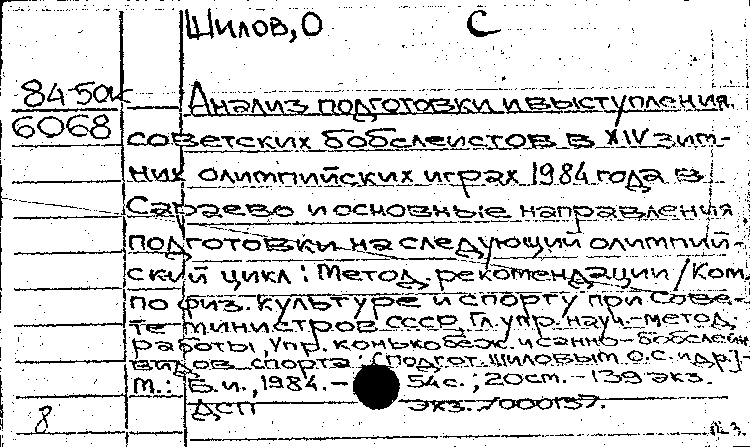 Шилов, О С
84-50к Анализ подготовки и выступления
6068 советских бобслеистов в XIV зим-
них олимпийских играх 1984 года в
Сараево и основные направления
подготовки на следующий олимпий-
ский цикл: Метод. рекомендации / Ком.
по физ. культуре и спорту при Сове-
те министров СССР, Гл. упр. науч.-метод.
работы, Упр. конькобеж. и санно-бобслейн.
видов спорта; [подгот. Шиловым О.С. и др.]-
М.: Б.и., 1984.- 54с.; 20см.-139 экз.
ДСП экз. /000137.
8